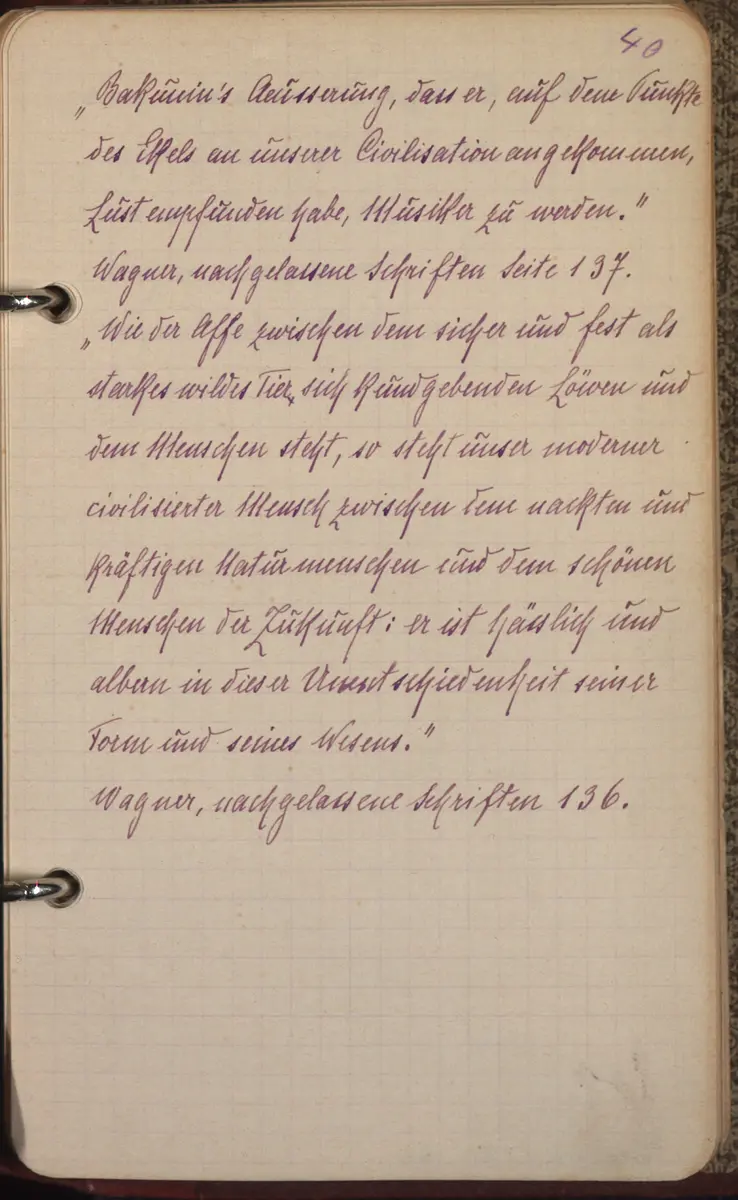 40
„Bakunin's Aeusserung, dass er, auf dem Punkte
des Ekels an unserer Civilisation angekommen,
Lust empfunden habe, Musiker zu werden."
Wagner, nachgelassene Schriften Seite 137.
„Wie der Affe zwischen dem sicher und fest als
starkes wildes Tier, sich kundgebenden Löwen und
dem Menschen steht, so steht unser moderner
civilisierter Mensch zwischen dem nackten und
kräftigen Naturmenschen und dem schönen
Menschen der Zukunft: er ist hässlich und
albern in dieser Unentschiedenheit seiner
Form und seines Wesens."
Wagner, nachgelassene Schriften 136.